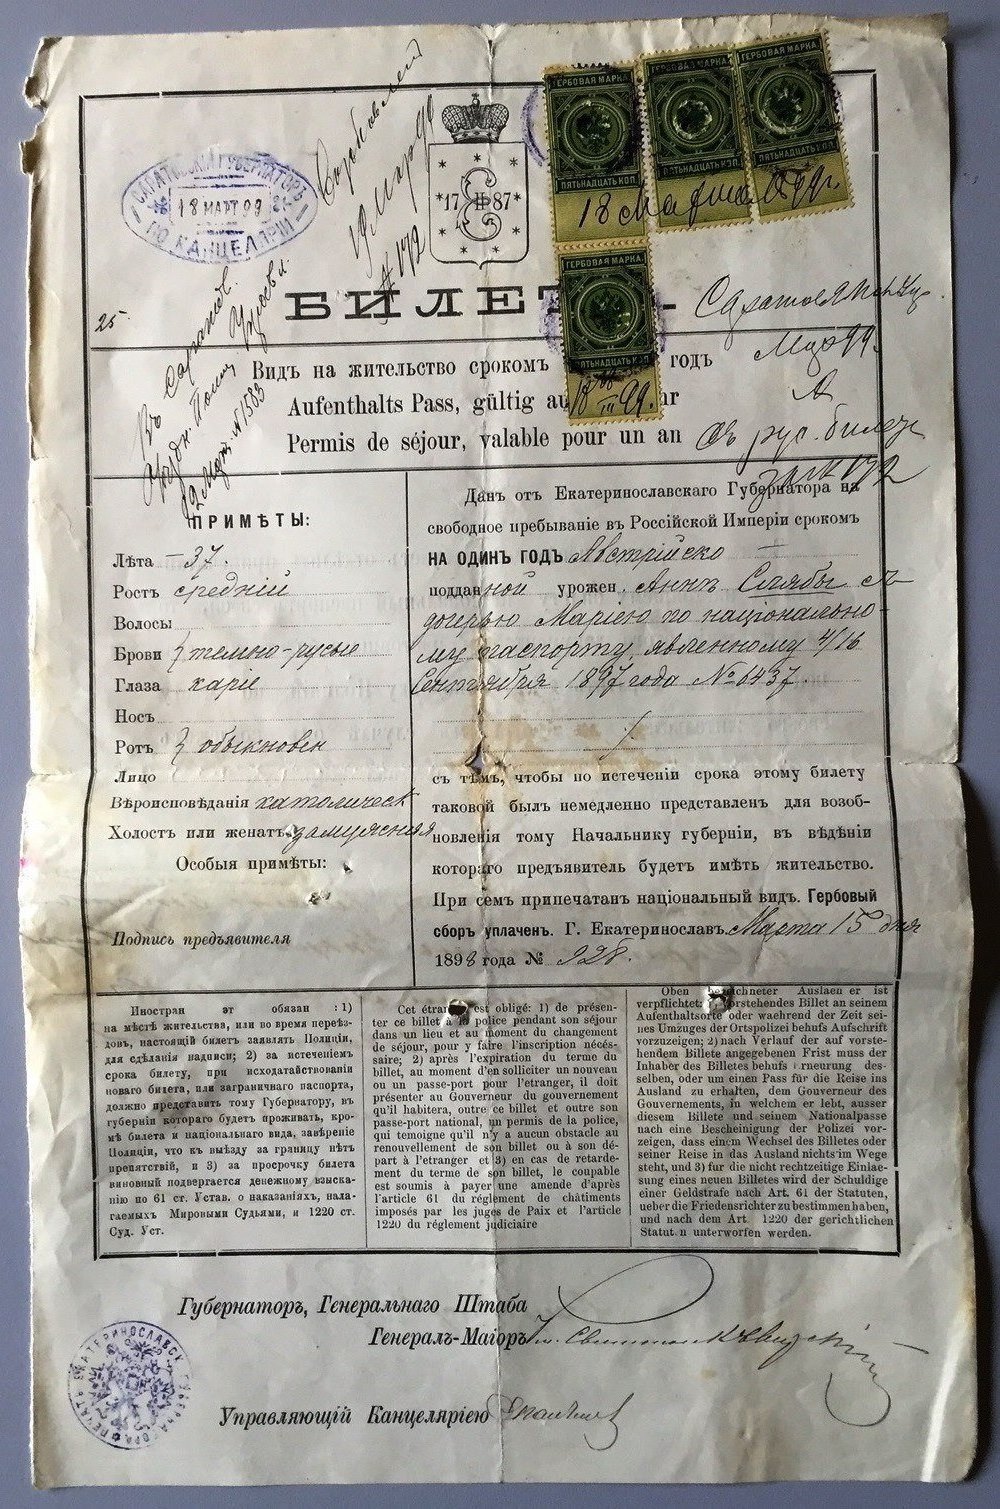 ГЕРБОВАЯ МАРКА.
ПЯТЬНАДЦАТЬ КОП.
ГЕРБОВАЯ МАРКА.
ПЯТЬНАДЦАТЬ КОП.
ГЕРБОВАЯ МАРКА.
ПЯТЬНАДЦАТЬ КОП.
18 Марта 99 г.
ГЕРБОВАЯ МАРКА.
ПЯТЬНАДЦАТЬ КОП.
18 III 99.
САРАТОВСКІЙ ГУБЕРНАТОРЪ
18 МАРТ 99
ПО КАНЦЕЛЯРІИ
17 87
19 Март 99
№ 172
25
БИЛЕТ
№ 1583
Видъ на жительство срокомъ годъ
Aufenthalts Pass, gültig au ar
Permis de séjour, valable pour un an
рус. билет
за № 172
ПРИМѢТЫ:
Лѣта – 37.
Ростъ средній
Волосы
Брови } темно-русые
Глаза каріе
Носъ
Ротъ } обыкновен
Лицо
Вѣроисповѣданія католическ
Холостъ или женатъ замужняя
Особыя примѣты:
Подпись предъявителя
Данъ отъ Екатеринославскаго Губернатора на
свободное пребываніе въ Россійской Имперіи срокомъ
НА ОДИНЪ ГОДЪ Австрійско
подданной урожен. Аннѣ Слябы съ
дочерью Маріею по національно-
му паспорту, явленному 4/16
Сентября 1897 года № 6437.
съ тѣмъ, чтобы по истеченіи срока этому билету
таковой былъ немедленно представленъ для возоб-
новленія тому Начальнику губерніи, въ вѣдѣніи
котораго предъявитель будетъ имѣть жительство.
При семъ припечатанъ національный видъ. Гербовый
сборъ уплаченъ. Г. Екатеринославъ Марта 15 дня
1898 года № 928.
Иностран эт обязан : 1)
на мѣстѣ жительства, или во время переѣз-
довъ, настоящій билетъ заявлять Полиціи,
для сдѣланія надписи; 2) за истеченіемъ
срока билету, при исходатайствованіи
новаго билета, или заграничнаго паспорта,
должно представить тому Губернатору, въ
губерніи котораго будетъ проживать, кро-
мѣ билета и національнаго вида, завѣреніе
Полиціи, что къ выѣзду за границу нѣтъ
препятствій, и 3) за просрочку билета
виновный подвергается денежному взыска-
нію по 61 ст. Устав. о наказаніяхъ, нала-
гаемыхъ Мировыми Судьями, и 1220 ст.
Суд. Уст.
Cet étran est obligé: 1) de présen-
ter ce billet à la police pendant son séjour
dans un lieu et au moment du changement
de séjour, pour y faire l'inscription nécés-
saire; 2) après l'expiration du terme du
billet, au moment d'en solliciter un nouveau
ou un passe-port pour l'etranger, il doit
présenter au Gouverneur du gouvernement
qu'il habitera, outre ce billet et outre son
passe-port national, un permis de la police,
qui temoigne qu'il n'y a aucun obstacle au
renouvellement de son billet ou à son dé-
part à l'etranger et 3) en cas de retarde-
ment du terme de son billet, le coupable
est soumis à payer une amende d'après
l'article 61 du réglement de châtiments
imposés par les juges de Paix et l'article
1220 du réglement judiciaire
Oben bezeichneter Auslaen er ist
verpflichtet: vorstehendes Billet an seinem
Aufenthaltsorte oder waehrend der Zeit sei-
nes Umzuges der Ortspolizei behufs Aufschrift
vorzuzeigen; 2) nach Verlauf der auf vorste-
hendem Billete angegebenen Frist muss der
Inhaber des Billetes behufs rneurung des-
selben, oder um einen Pass für die Reise ins
Ausland zu erhalten, dem Gouverneur des
Gouvernements, in welchem er lebt, ausser
diesem Billete und seinem Nationalpasse
nach eine Bescheinigung der Polizei vor-
zeigen, dass einem Wechsel des Billetes oder
seiner Reise in das Ausland nichts im Wege
steht, und 3) fur die nicht rechtzeitige Einlae-
sung eines neuen Billetes wird der Schuldige
einer Geldstrafe nach Art. 61 der Statuten,
ueber die Friedensrichter zu bestimmen haben,
und nach dem Art. 1220 der gerichtlichen
Statut n unterworfen werden.
Губернаторъ, Генеральнаго Штаба
Генералъ-Маіоръ
Управляющій Канцеляріею
ПЕЧАТЬ ЕКАТЕРИНОСЛАВСК ГУБЕРНАТОРА